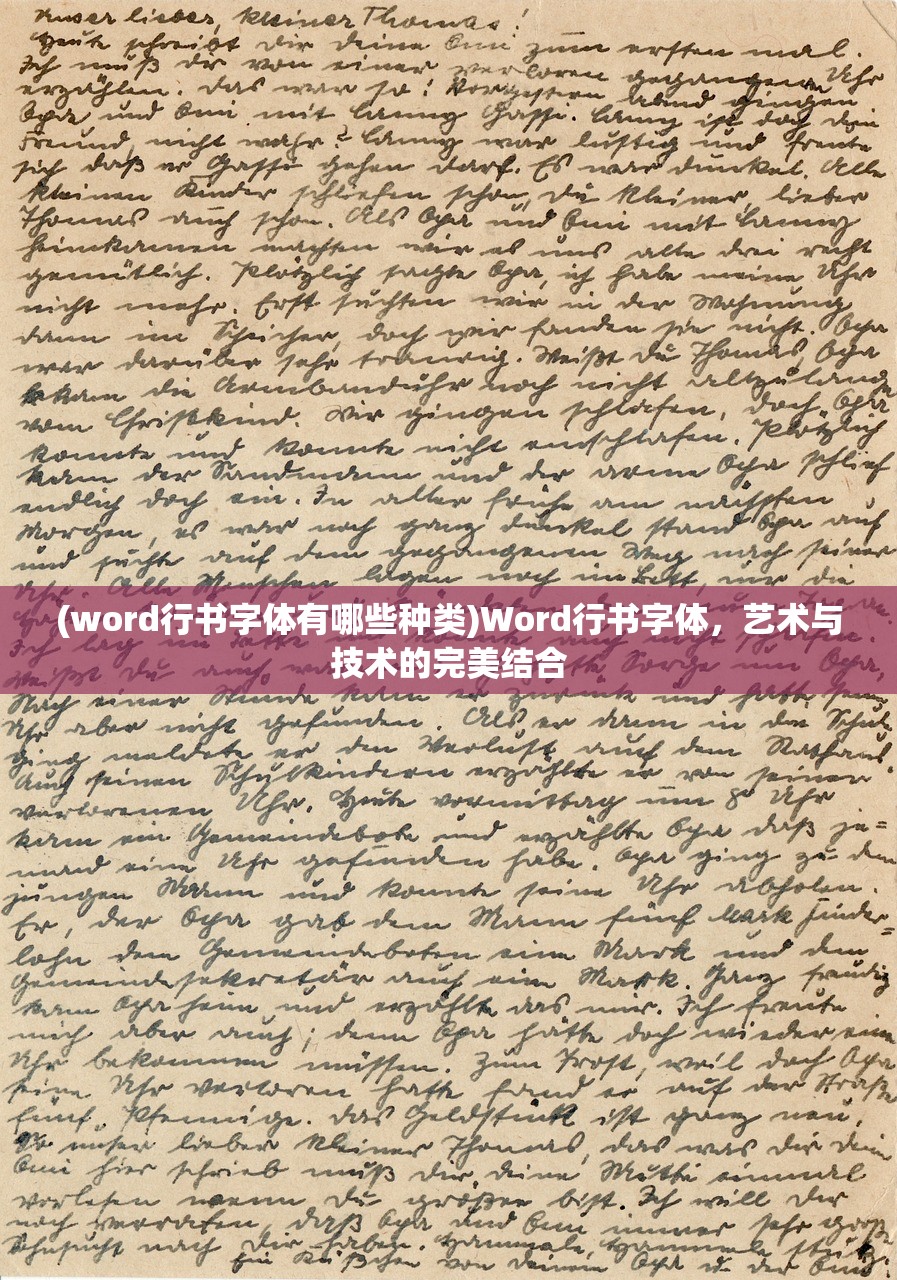 Unser lieber, kleiner Thomas!
Heute schreibt dir deine Omi zum ersten mal.
Ich muß dir von einer verloren gegangenen Uhr
erzählen. Das war so: Vorgestern abend gingen
Opa und Omi mit Lanny Gassi. Lanny ist doch dein
Freund, nicht wahr? Lanny war lustig und freute
sich daß er Gassi gehen darf. Es war dunkel. Alle
kleinen Kinder schliefen schon, du kleiner, lieber
Thomas auch schon. Als Opa und Omi mit Lanny
heimkamen machten wir es uns alle drei recht
gemütlich. Plötzlich sagte Opa, ich habe meine Uhr
nicht mehr. Erst suchten wir in der Wohnung
dann im Speicher, doch wir fanden sie nicht. Opa
war darüber sehr traurig. Weißt du Thomas, Opa
bekam die Armbanduhr noch nicht allzulange
vom Christkind. Wir gingen schlafen, doch Opa
konnte und konnte nicht einschlafen. Plötzlich
kam der Sandmann und der arme Opa schlief
endlich doch ein. In aller frühe am nächsten
Morgen, es war noch ganz dunkel stand Opa auf
und suchte auf dem gegangenen Weg nach seiner
Uhr. Alle Menschen lagen noch im Bett, nur die
(word行书字体有哪些种类)Word行书字体，艺术与
技术的完美结合
Ich lag im Bette
Weißt du auch, Sorge um Opa.
Nach einer Stunde kam er zurück und hatte seine
Uhr aber nicht gefunden. Als er dann in die Schule
ging meldete er den Verlust auf dem Rathaus.
Auch seinen Schulkindern erzählte er von seiner
verlorenen Uhr. Heute vormittag um 8 Uhr
kam ein Gemeindebote und erzählte Opa daß je=
mand eine Uhr gefunden habe. Opa ging zu dem
jungen Mann und konnte seine Uhr abholen.
Er, der Opa gab dem Mann fünf Mark Finder=
lohn dem Gemeindeboten eine Mark und dem
Gemeindesekretär auch eine Mark. Ganz freudig
kam Opa heim und erzählte das mir. Ich freute
mich aber auch; denn Opa hätte doch wieder eine
Uhr bekommen müssen. Zum Trost, weil doch Opa
seine Uhr verloren hatte fand er auf der Straße
fünf Pfennige. Das Geldstück ist ganz neu.
So unser lieber kleiner Thomas, das was dir deine
Omi hier schrieb muß dir deine Mutti einmal
vorlesen wenn du größer bist. Ich will dir
noch verraten, daß Opa und Omi immer sehr große
Sehnsucht nach dir haben.
Ein Küßchen von deinem Opa u. der Omi